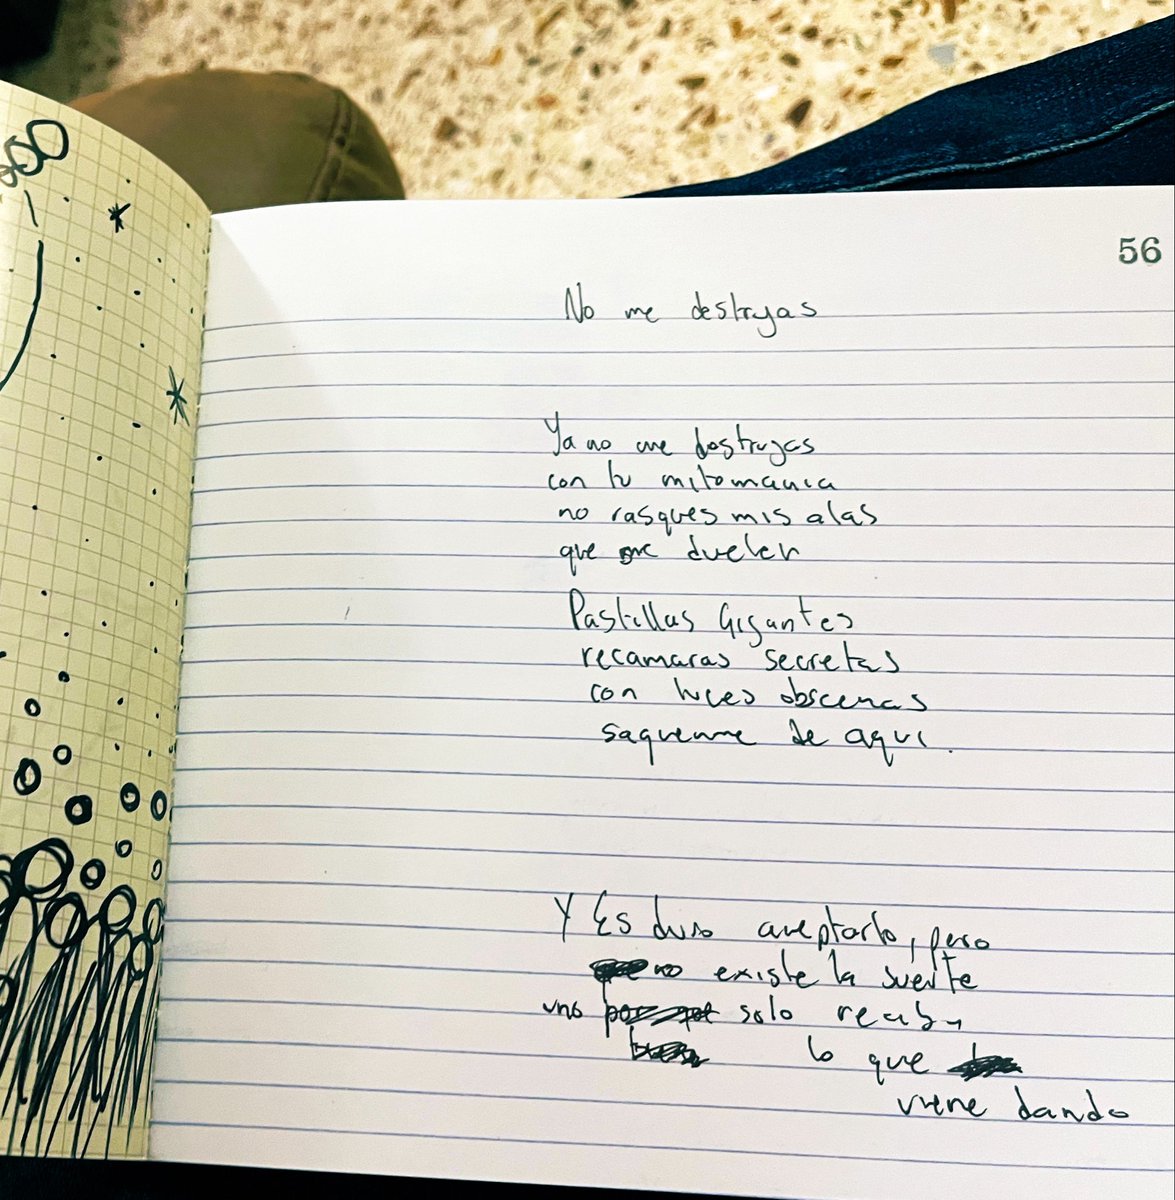 56
No me destruyas
Ya no me destruyas
con tu mitomania
no rasques mis alas
que me duelen
Pastillas Gigantes
recamaras secretas
con luces obscenas
saquenme de aqui.
Y Es duro aceptarlo, pero
no existe la suerte
uno solo recibe
lo que
viene dando